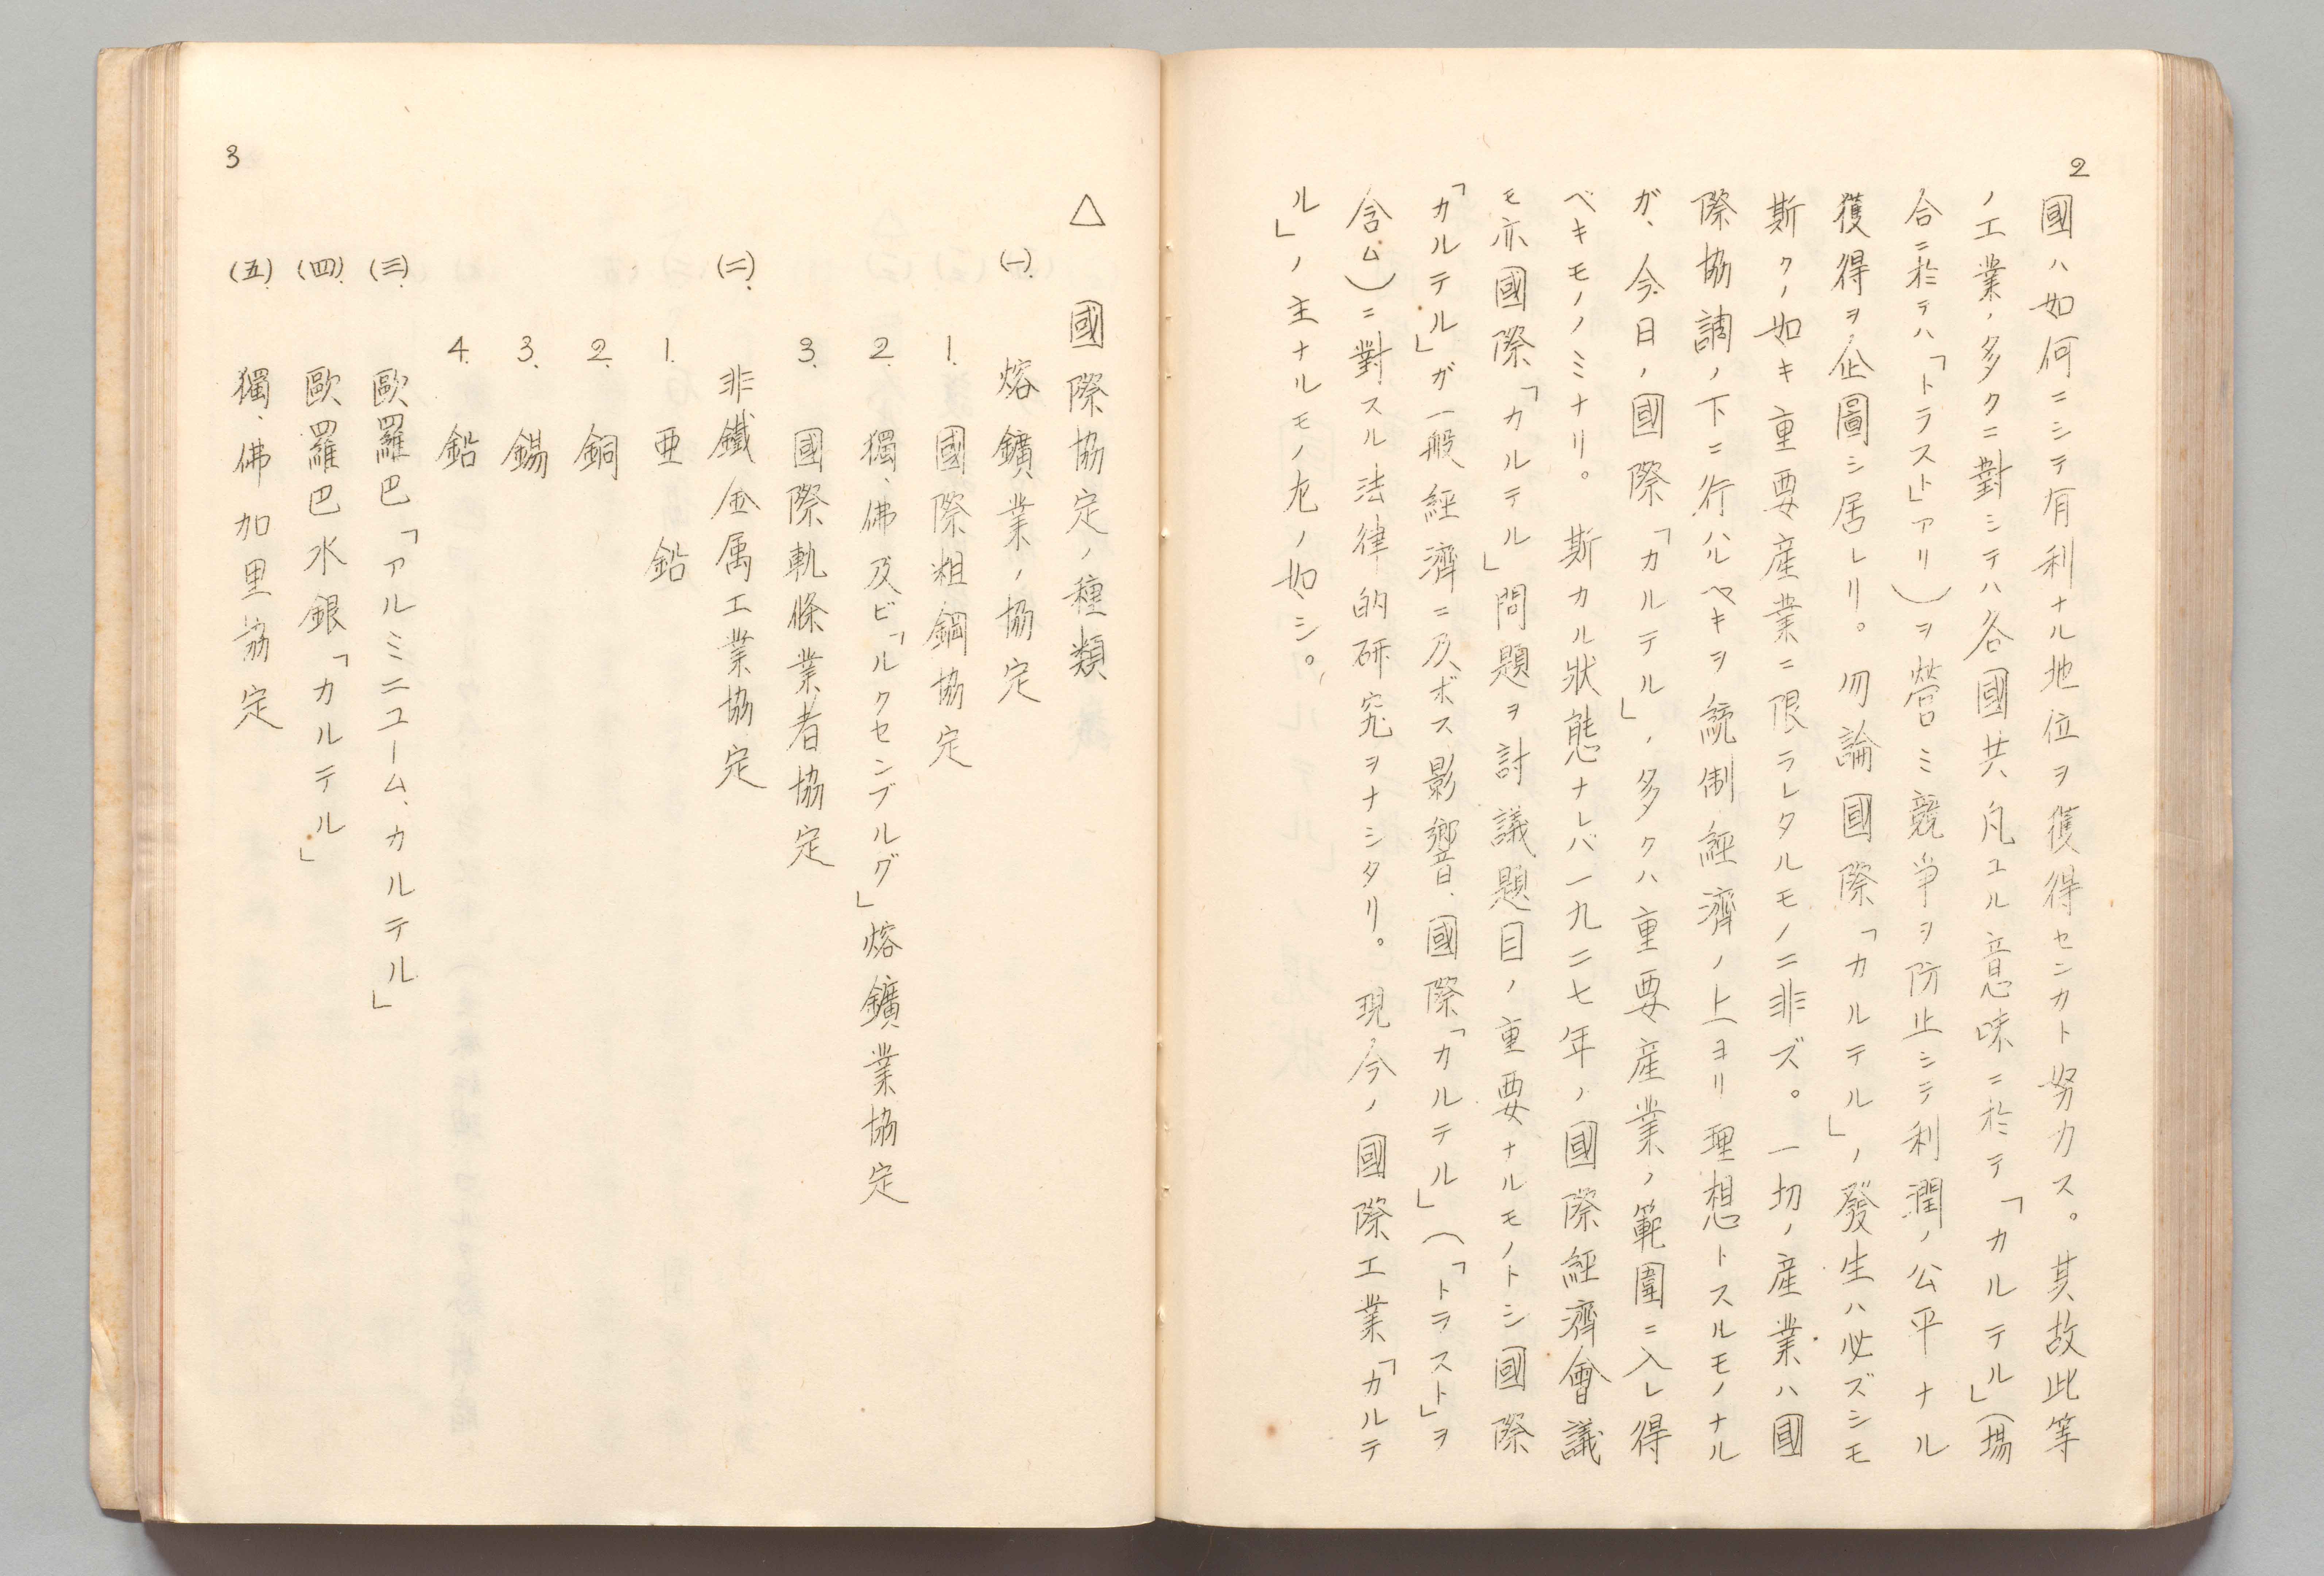 2
國ハ如何ニシテ有利ナル地位ヲ獲得センカト努力ス。其故此等
ノ工業ノ多クニ對シテハ各國共凡ユル意味ニ於テ「カルテル」(場
合ニ於テハ「トラスト」アリ)ヲ營ミ競争ヲ防止シテ利潤ノ公平ナル
獲得ヲ企圖シ居レリ。勿論國際「カルテル」ノ發生ハ必ズシモ
斯クノ如キ重要産業ニ限ラレタルモノニ非ズ。一切ノ産業ハ國
際協調ノ下ニ行ハルベキヲ統制經濟ノ上ヨリ理想トスルモノナル
ガ、今日ノ國際「カルテル」ノ多クハ重要産業ノ範圍ニ入レ得
ベキモノノミナリ。斯カル狀態ナレバ一九二七年ノ國際經濟會議
モ亦國際「カルテル」問題ヲ討議題目ノ重要ナルモノトシ國際
「カルテル」ガ一般經濟ニ及ボス影響、國際「カルテル」(「トラスト」ヲ
含ム)ニ對スル法律的研究ヲナシタリ。現今ノ國際工業「カルテ
ル」ノ主ナルモノ左ノ如シ。
△ 國際協定ノ種類
(一). 熔鑛業ノ協定
1. 國際粗鋼協定
2. 獨、佛及ビ「ルクセンブルグ」熔鑛業協定
3. 國際軌條業者協定
(二). 非鐵金属工業協定
1. 亜鉛
2. 銅
3. 錫
4. 鉛
(三). 歐羅巴「アルミニユーム、カルテル」
(四). 歐羅巴水銀「カルテル」
(五). 獨、佛加里協定
3